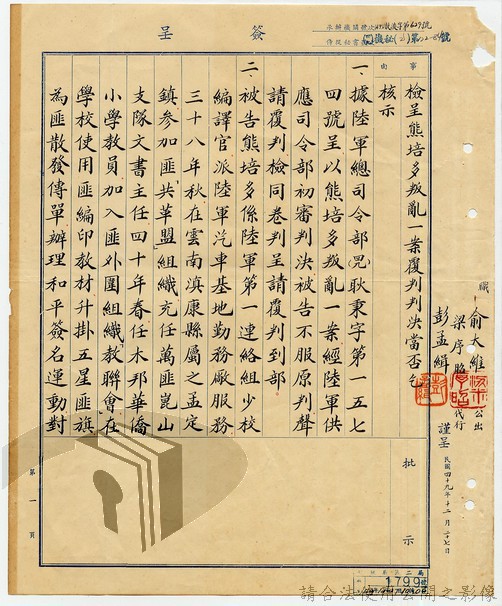 簽呈
事由
檢呈熊培多叛亂一案覆判判決當否乞
核示
一、據陸軍總司令部(兄)耿秉字第一五七
四號呈以熊培多叛亂一案經陸軍供
應司令部初審判決被告不服原判聲
請覆判檢同卷判呈請覆判到部
二、被告熊培多係陸軍第一連絡組少校
編譯官派陸軍汽車基地勤務廠服務
三十八年秋在雲南滇康縣屬之孟定
鎮參加匪共革盟組織充任萬匪崑山
支隊文書主任四十年春任木邦華僑
小學教員加入匪外圍組織教聯會在
學校使用匪編印教材升掛五星匪旗
為匪散發傳單辦理和平簽名運動對
職
俞大維公出
梁序昭代行
彭孟緝
謹呈
民國四十九年十二月二十七日
批示
第一頁
1799
請合法使用公開之影像